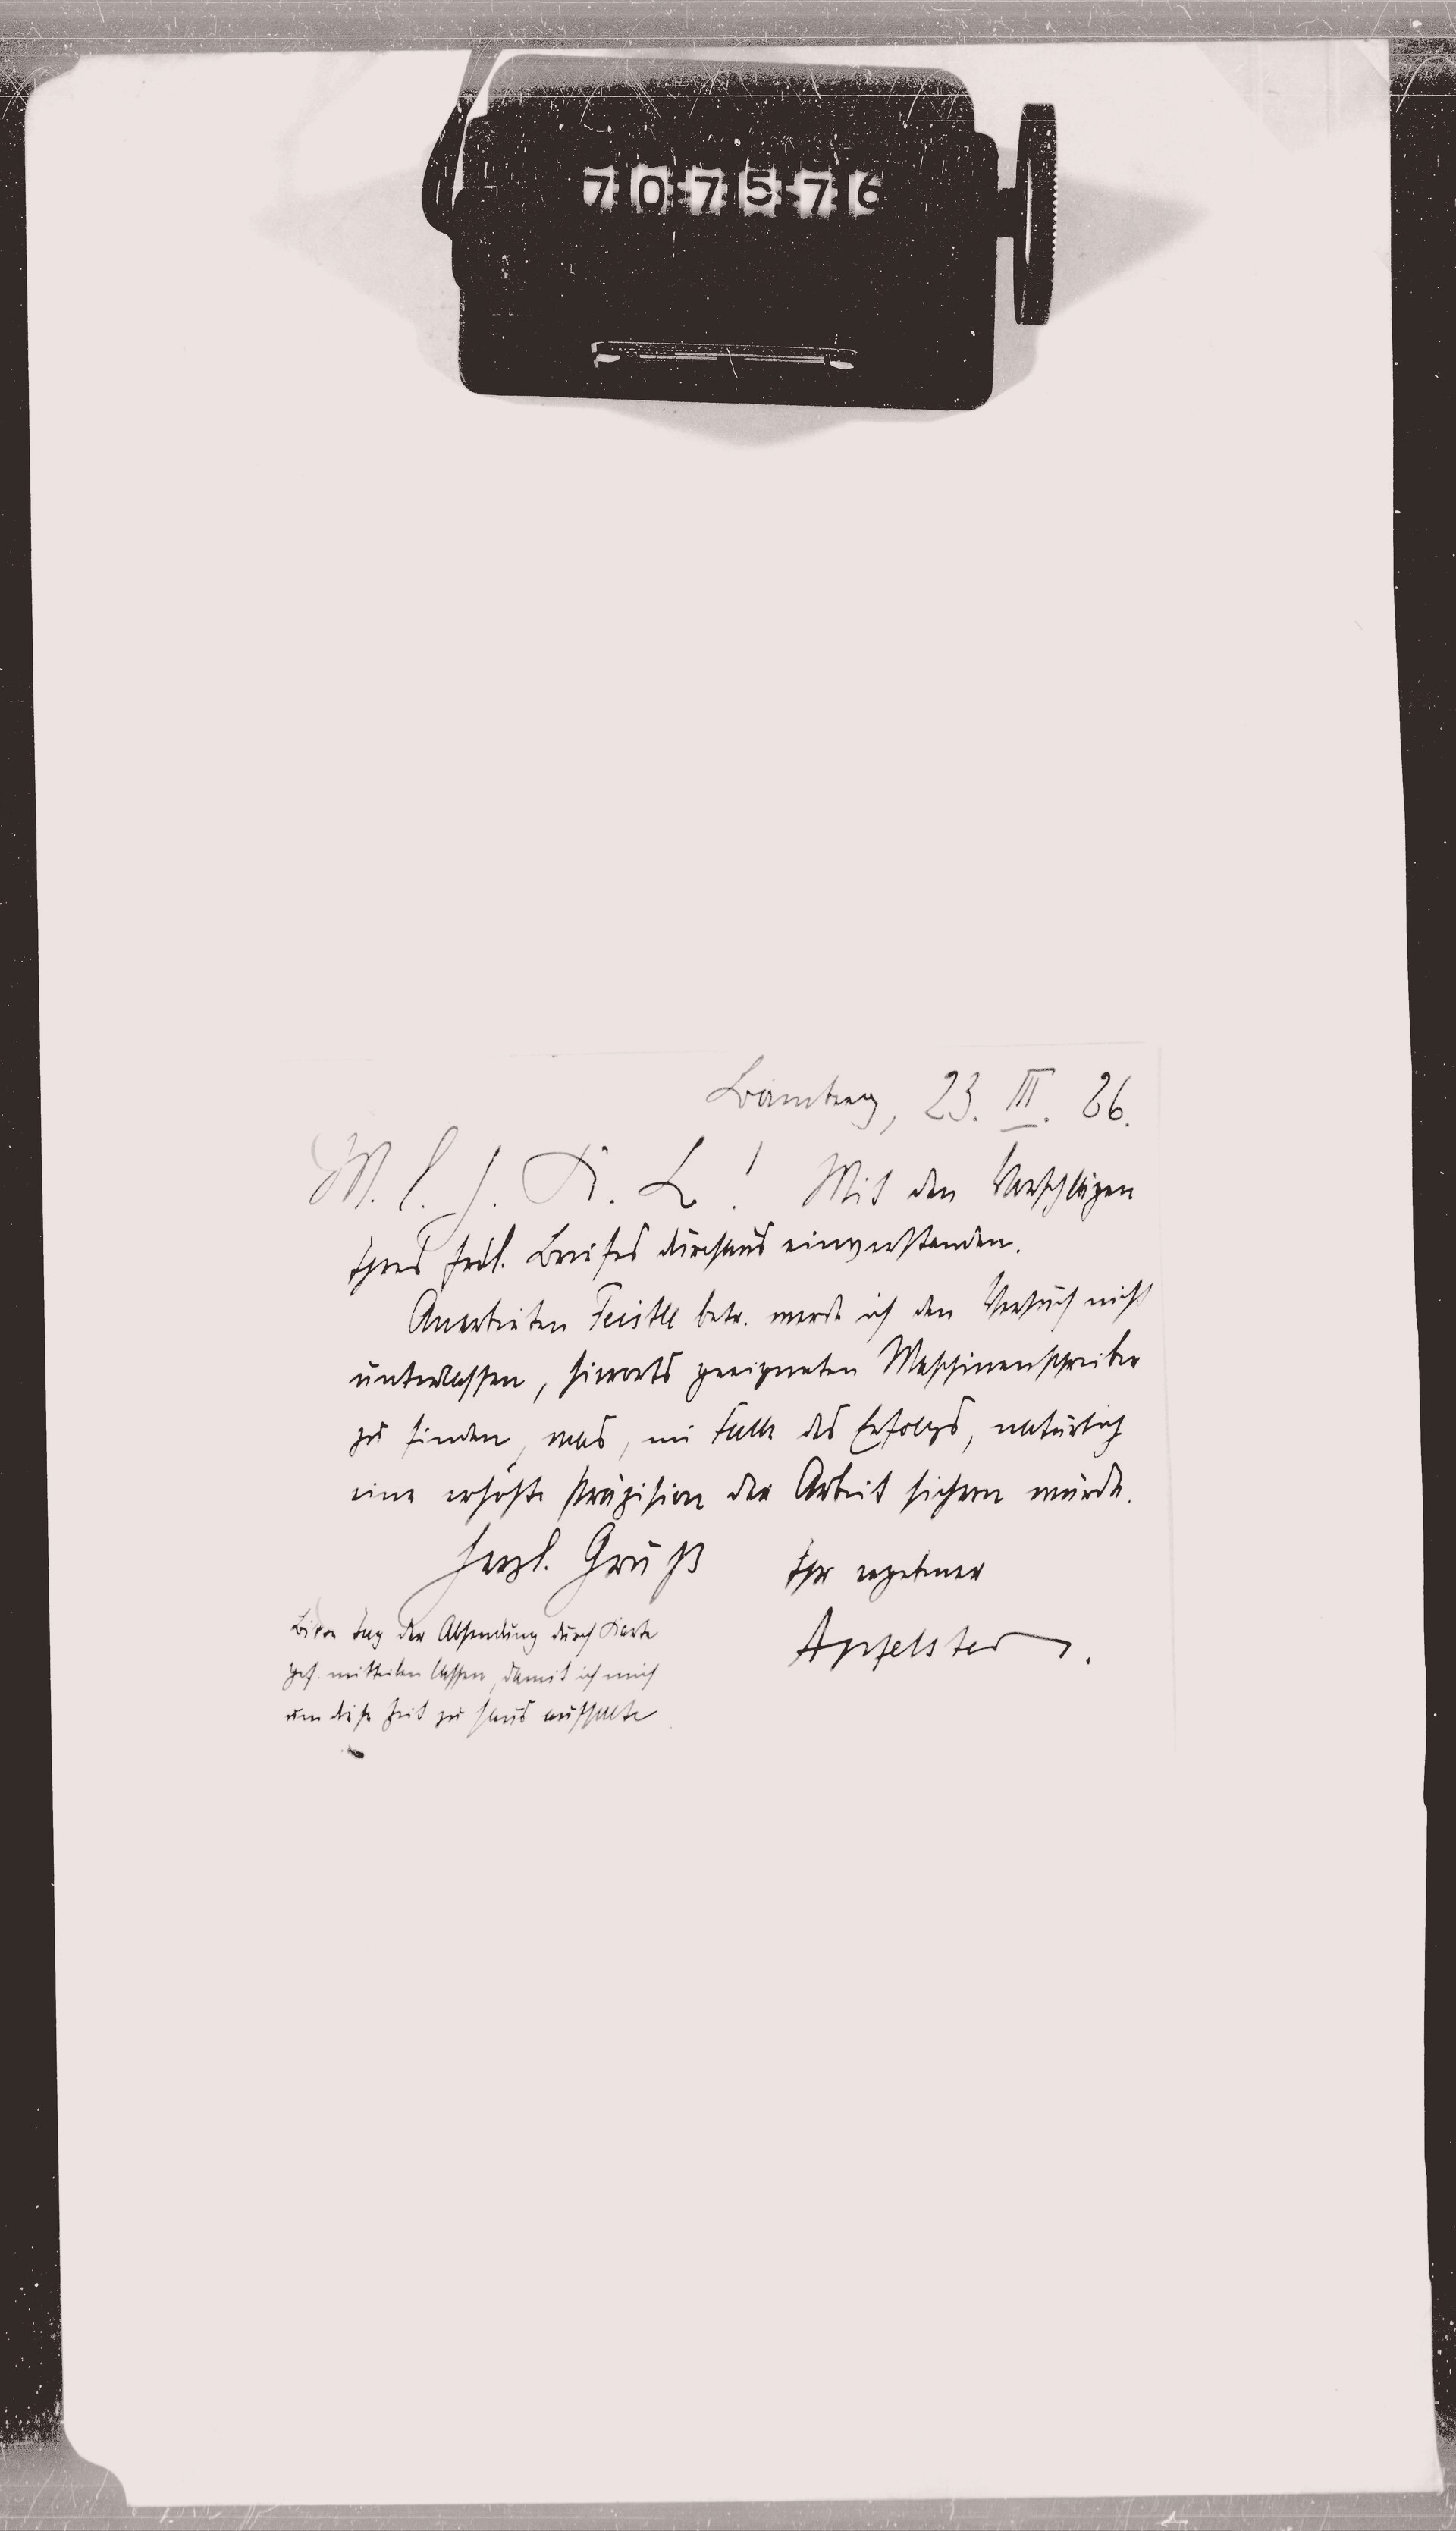 707576
Bamberg, 23. III. 26.
M. l. H. K. L! Mit den Vorschlägen
Ihres frdl. Briefes durchaus einverstanden.
Anerbieten betr. werde ich den Versuch nicht
unterlassen, hierorts geeigneten Maschinenschreiber
zu finden, was, im Falle des Erfolgs, natürlich
eine erhöhte Präzision der Arbeit sichern würde.
Herzl. Gruß Ihr ergebener
Apfelster
Tag der Absendung durch Karte
gef. mitteilen lassen, damit ich mich
um diese Zeit zu Haus aufhalte